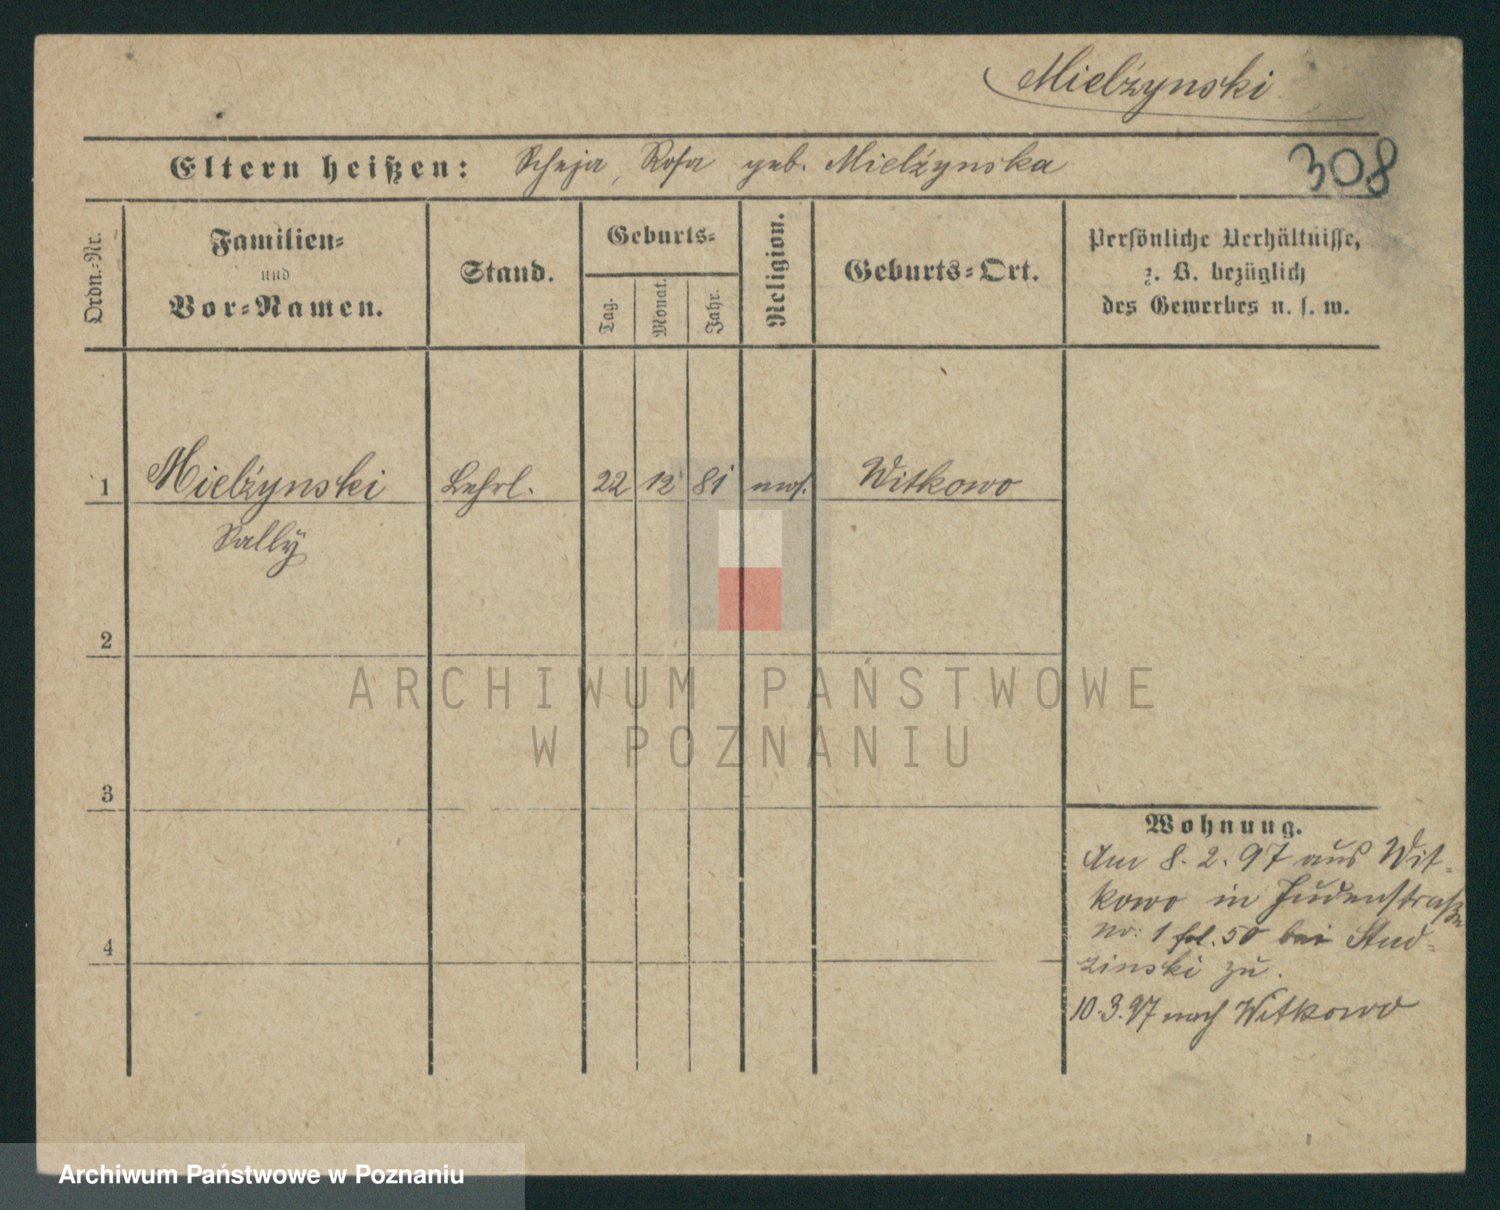 Mielżynski
Eltern heißen: Scheja, Rosa geb. Mielżynska
308
Ordn.-Nr.
Familien-
und
Vor-Namen.
Stand.
Geburts-
Tag.
Monat.
Jahr.
Religion.
Geburts-Ort.
Persönliche Verhältnisse,
z. B. bezüglich
des Gewerbes u. s. w.
1 Mielżynski Lehrl. 22 12 81 mos. Witkowo
Sally
2
ARCHIWUM PAŃSTWOWE
W POZNANIU
3
Wohnung.
Am 8. 2. 97 aus Wit-
kowo in Judenstraße
nr: 1 fol. 50 bei Stud-
zinski zu.
4
10.3.97 nach Witkowo
Archiwum Państwowe w Poznaniu